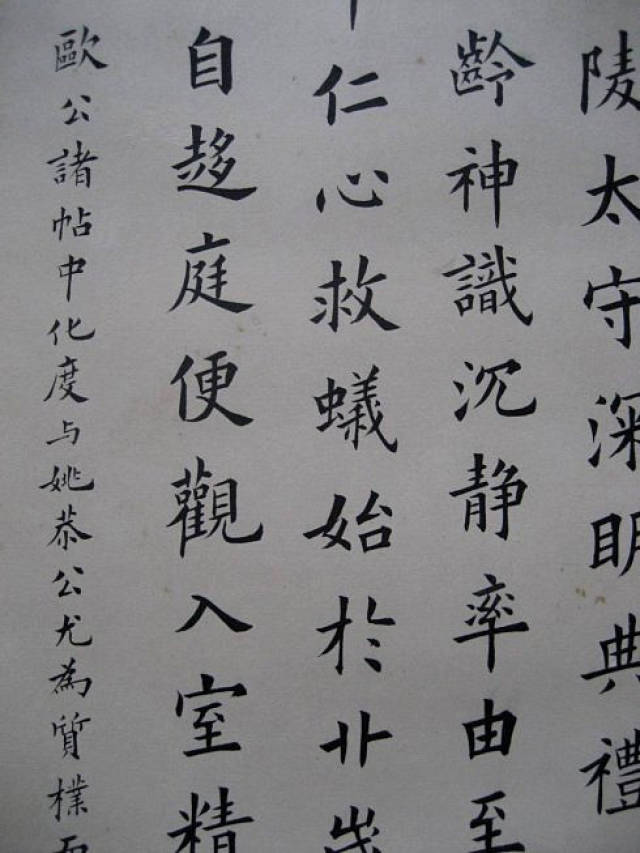 陵太守深明典禮
齡神識沉静率由至
仁心救蟻始於丱歲
自趍庭便觀入室精
歐公諸帖中化度与姚恭公尤為質樸而